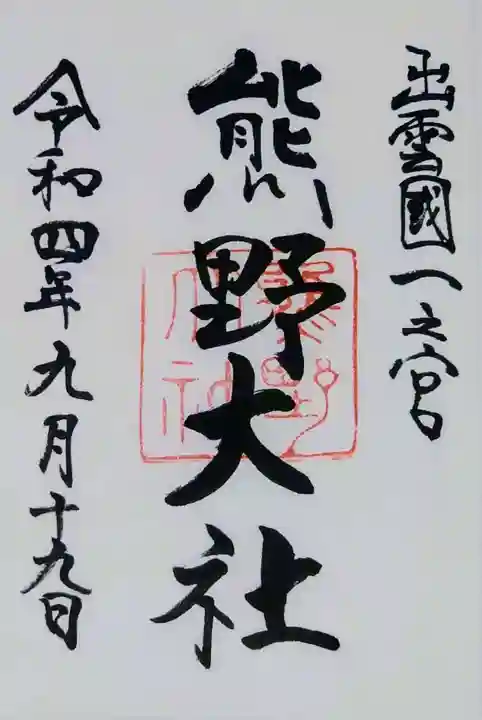 出雲國一之宮
熊野大社
令和四年九月十九日
熊野
大神